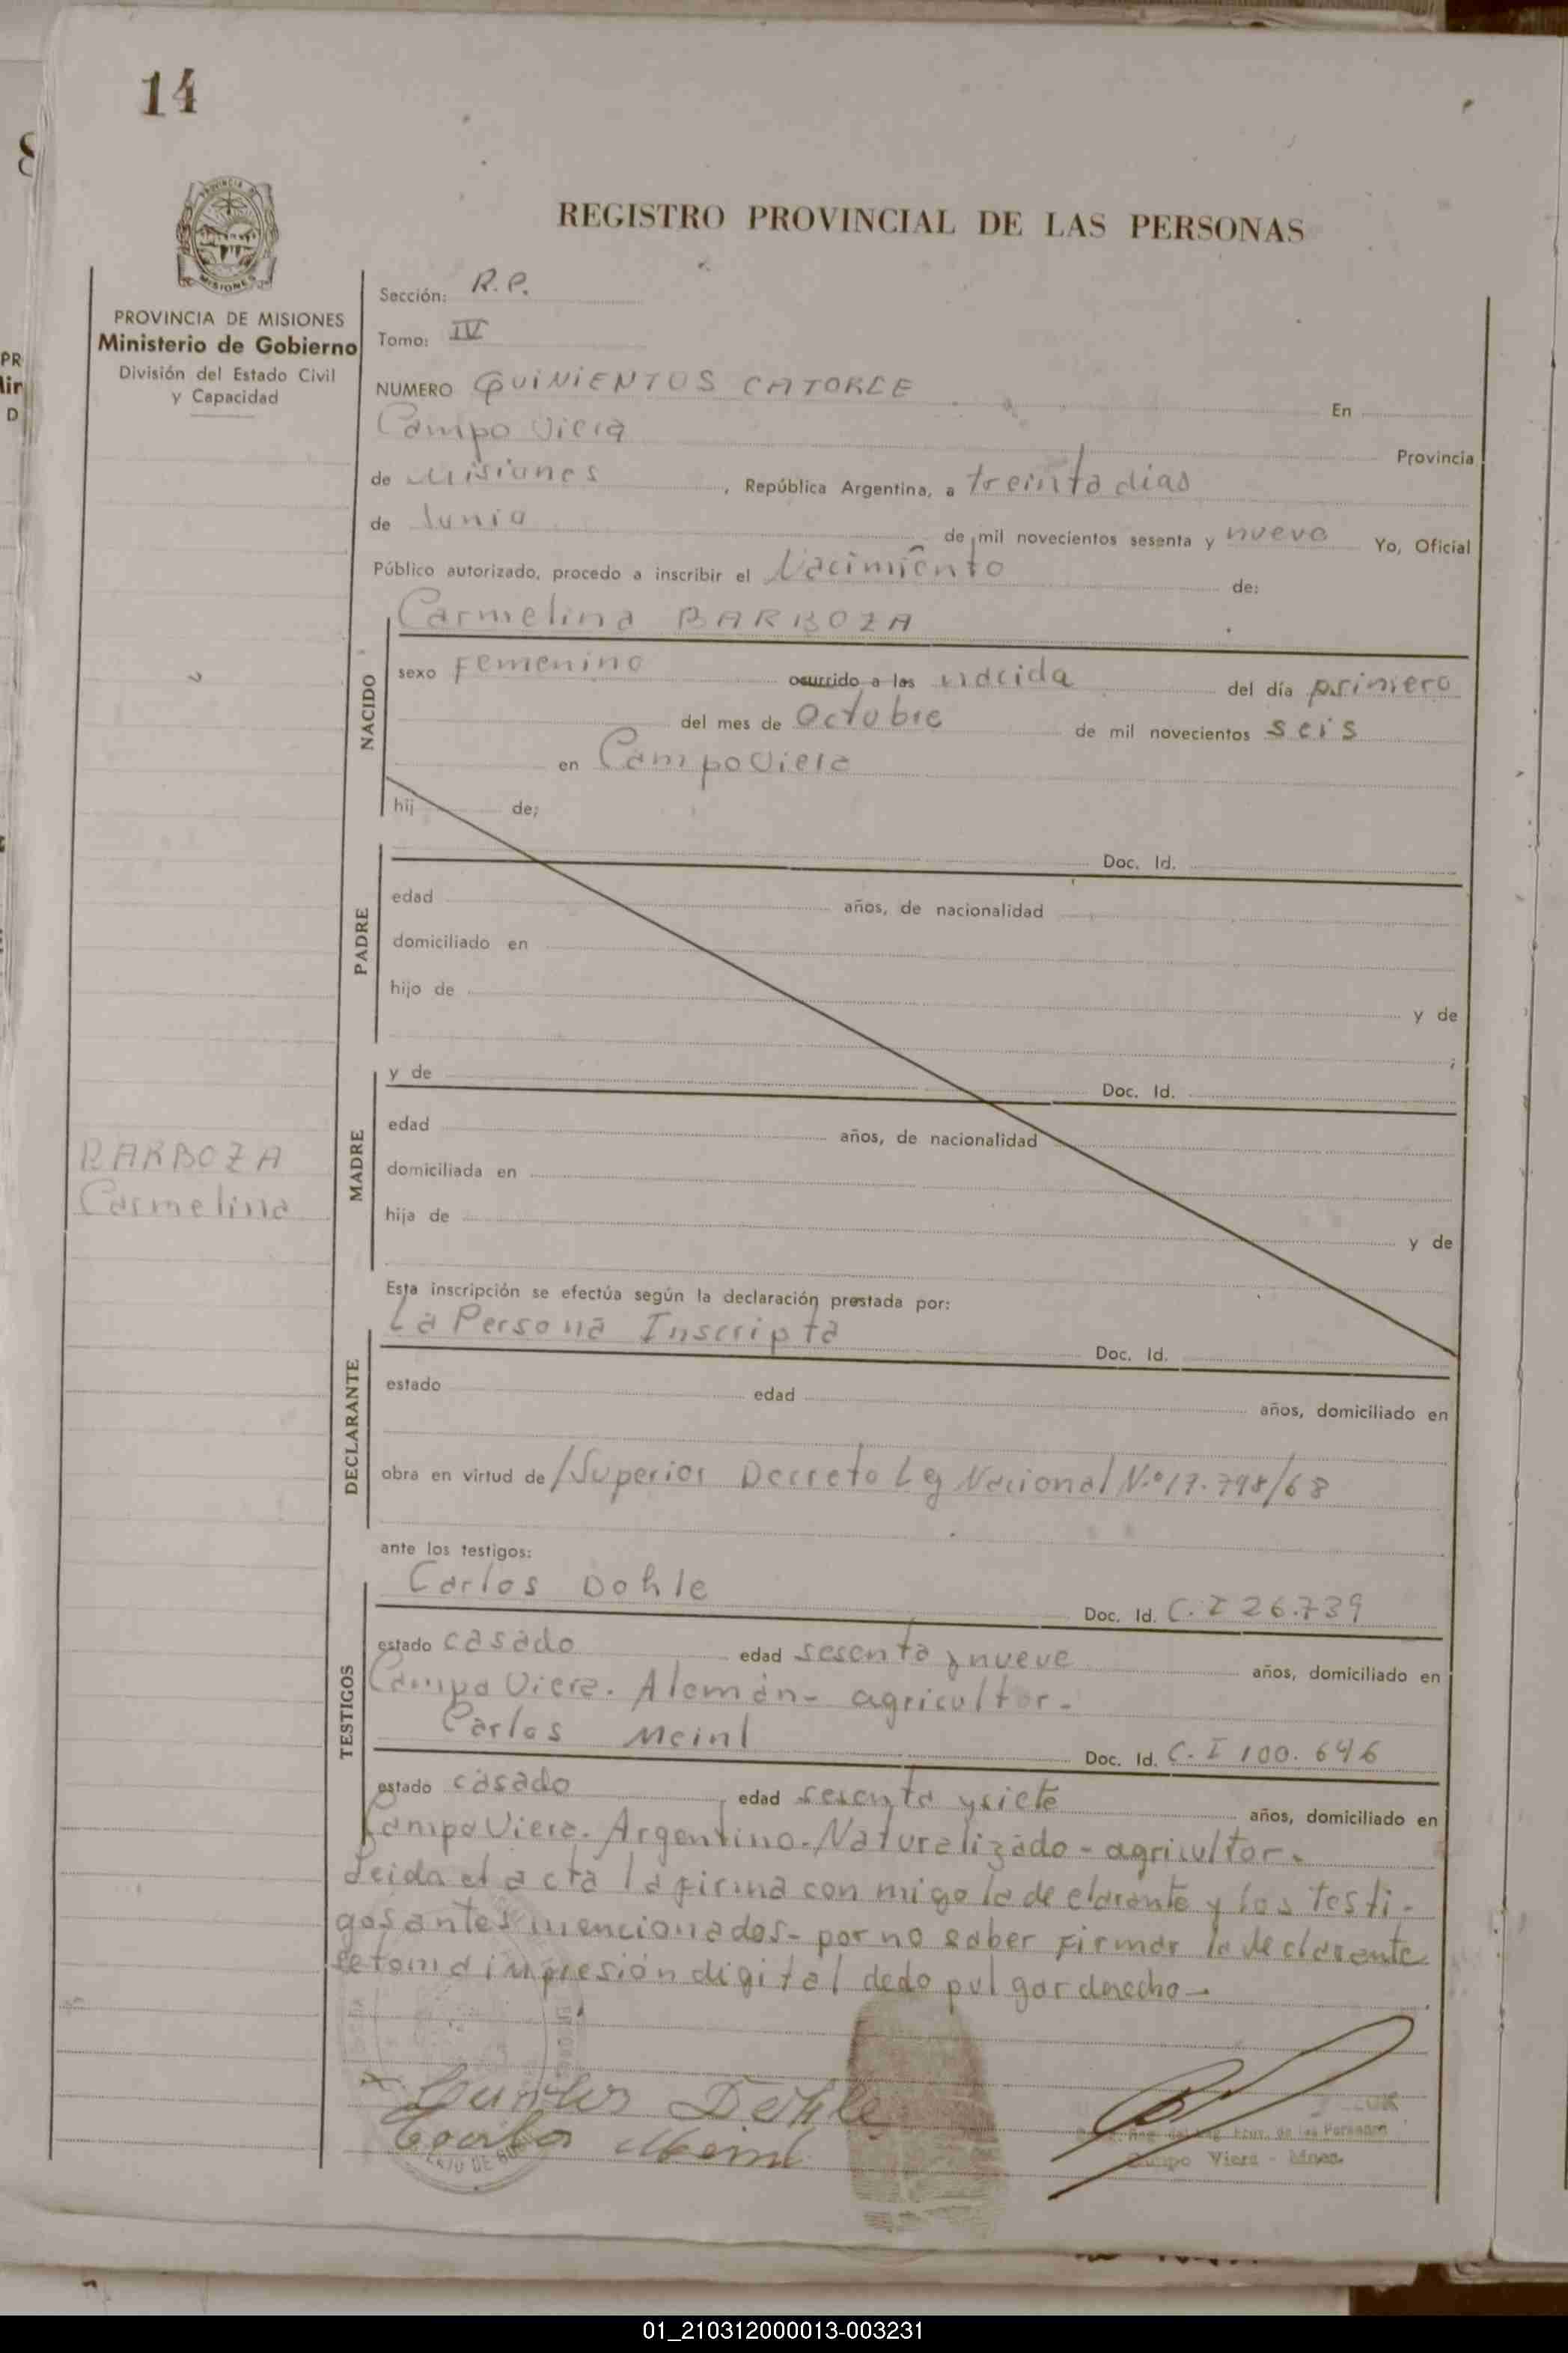 14
8
REGISTRO PROVINCIAL DE LAS PERSONAS
PROVINCIA DE MISIONES
Ministerio de Gobierno
División del Estado Civil
y Capacidad
Sección: R.P.
Tomo: IV
NUMERO QUINIENTOS CATORCE En
Campo Viera Provincia
de Misiones, República Argentina, a treinta dias
de Junio de mil novecientos sesenta y nueve Yo, Oficial
Público autorizado, procedo a inscribir el Nacimiento de:
Carmelina BARBOZA
NACIDO
sexo Femenino ocurrido a las nacida del día primero
del mes de Octubre de mil novecientos seis
en Campo Viera
hij de;
PADRE
Doc. Id.
edad años, de nacionalidad
domiciliado en
hijo de y de
;
MADRE
y de Doc. Id.
edad años, de nacionalidad
domiciliada en
hija de y de
BARBOZA
Carmelina
Esta inscripción se efectúa según la declaración prestada por:
DECLARANTE
La Persona Inscripta Doc. Id.
estado edad años, domiciliado en
obra en virtud de /Superior Decreto Ley Nacional N.º 17.798/68
ante los testigos:
TESTIGOS
Carlos Dohle Doc. Id. C.I 26.739
estado casado edad sesenta y nueve años, domiciliado en
Campo Viera. Alemán- agricultor-
Carlos Meinl Doc. Id. C.I 100.646
estado casado edad sesenta y siete años, domiciliado en
Campo Viera. Argentino-Naturalizado- agricultor-
Leida el acta la firma con migo la declarante y los testi-
gos antes mencionados- por no saber firmar la declarante
se toma impresión digital dedo pulgar derecho-
Carlos Dohle
Carlos Meinl
Prov. de las Personas
Campo Viera - Mnes.
01_210312000013-003231